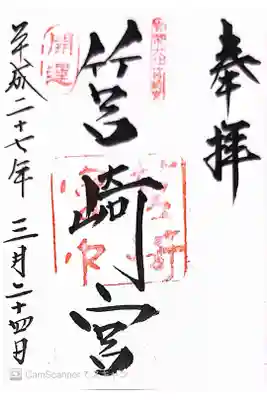 奉拝
筥崎宮
開運
平成二十七年 三月二十四日
CamScanner でスキャン